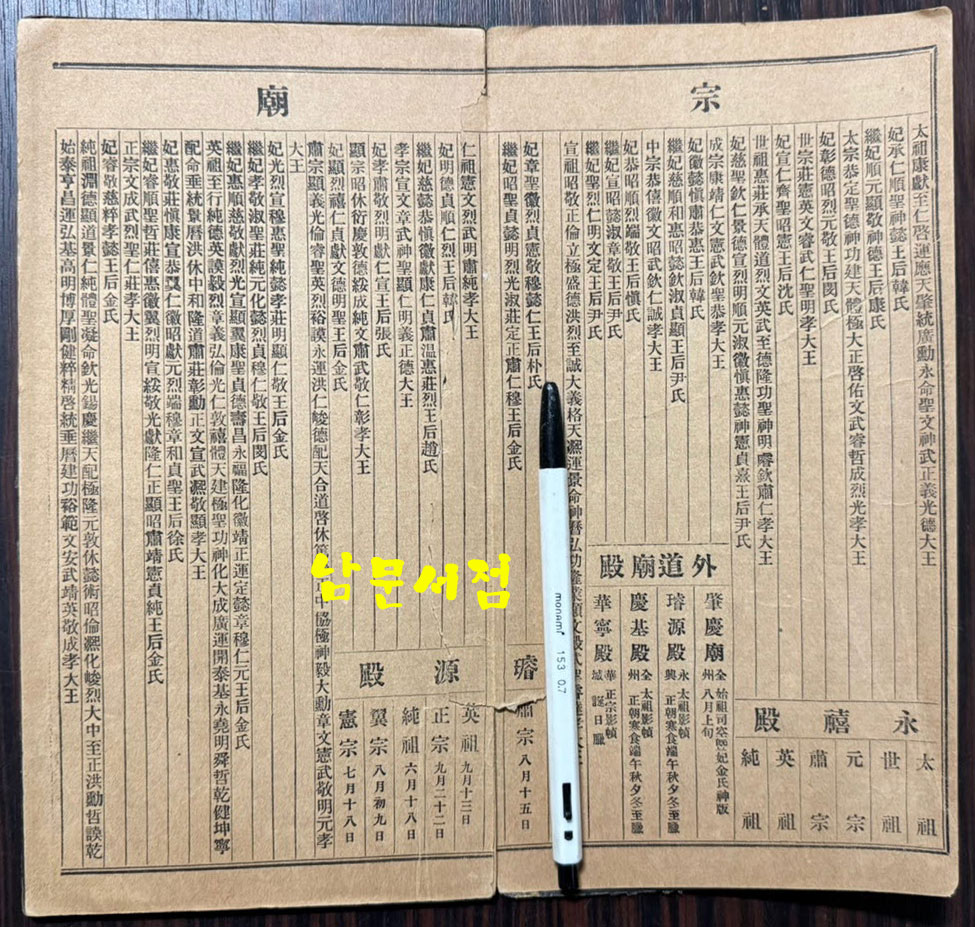 宗廟
太祖康獻至仁啓運應天肇統廣勳永命聖文神武正義光德大王
妃承仁順聖神懿王后韓氏
繼妃順元顯敬神德王后康氏
太宗恭定聖德神功建天體極大正啓佑文武睿哲成烈光孝大王
妃彰德昭烈元敬王后閔氏
世宗莊憲英文睿武仁聖明孝大王
妃宣仁齊聖昭憲王后沈氏
世祖惠莊承天體道烈文英武至德隆功聖神明睿欽肅仁孝大王
妃慈聖欽仁景德宣烈明順元淑徽愼惠懿神憲貞熹王后尹氏
成宗康靖仁文憲武欽聖恭孝大王
妃徽懿愼肅恭惠王后韓氏
繼妃慈順和惠昭懿欽淑貞顯王后尹氏
中宗恭僖徽文昭武欽仁誠孝大王
妃恭昭順烈端敬王后愼氏
繼妃宣昭懿淑章敬王后尹氏
繼妃聖烈仁明文定王后尹氏
宣祖昭敬正倫立極盛德洪烈至誠大義格天熙運景命神曆弘功隆業
妃章聖徽烈貞憲敬穆懿仁王后朴氏
繼妃昭聖貞懿明烈光淑莊定正肅仁穆王后金氏
外道廟殿
肇慶廟 全州 始祖司空曁妃金氏神版 八月上旬
璿源殿 永興 太祖影幀 正朝寒食端午秋夕冬至臘
慶基殿 全州 太祖影幀 正朝寒食端午秋夕冬至臘
華寧殿 華城 正宗影幀 誕日臘
永禧殿
太祖
世祖
元宗
肅宗
英祖
純祖
仁祖憲文烈武明肅純孝大王
妃明德貞順仁烈王后韓氏
繼妃慈懿恭愼徽獻康仁貞肅溫惠莊烈王后趙氏
孝宗宣文章武神聖顯仁明義正德大王
妃孝肅敬烈明獻仁宣王后張氏
顯宗昭休衍慶敦德綏成純文肅武敬仁彰孝大王
妃顯烈禧仁貞獻文德明聖王后金氏
肅宗顯義光倫睿聖英烈裕謨永運洪仁峻德配天合道啓休
中協極神毅大勳章文憲武敬明元孝
大王
妃光烈宣穆惠聖純懿孝莊明顯仁敬王后金氏
繼妃孝敬淑聖莊純元化懿烈貞穆仁敬王后閔氏
繼妃惠順慈敬獻烈光宣顯翼康聖貞德壽昌永福隆化徽靖正運定懿章穆仁元王后金氏
英祖至行純德英謨毅烈章義弘倫光仁敦禧體天建極聖功神化大成廣運開泰基永堯明舜哲乾健坤寧
配命垂統景曆洪休中和隆道肅莊彰勳正文宣武熙敬顯孝大王
妃惠敬莊愼康宣恭翼仁徽昭獻元烈端穆章和貞聖王后徐氏
繼妃睿順聖哲莊僖惠徽翼烈明宣綏敬光獻隆仁正顯昭肅靖憲貞純王后金氏
正宗文成武烈聖仁莊孝大王
妃睿敬慈粹孝懿王后金氏
純祖淵德顯道景仁純體聖凝命欽光錫慶繼天配極隆元敦休懿術昭倫熙化峻烈大中至正洪勳哲謨乾
始泰亨昌運弘基高明博厚剛健粹精啓統垂曆建功裕範文安武靖英敬成孝大王
璿源殿
肅宗 八月十五日
英祖 九月十三日
正宗 九月二十二日
純祖 六月十八日
翼宗 八月初九日
憲宗 七月十八日
남문서점
monami 153 0.7